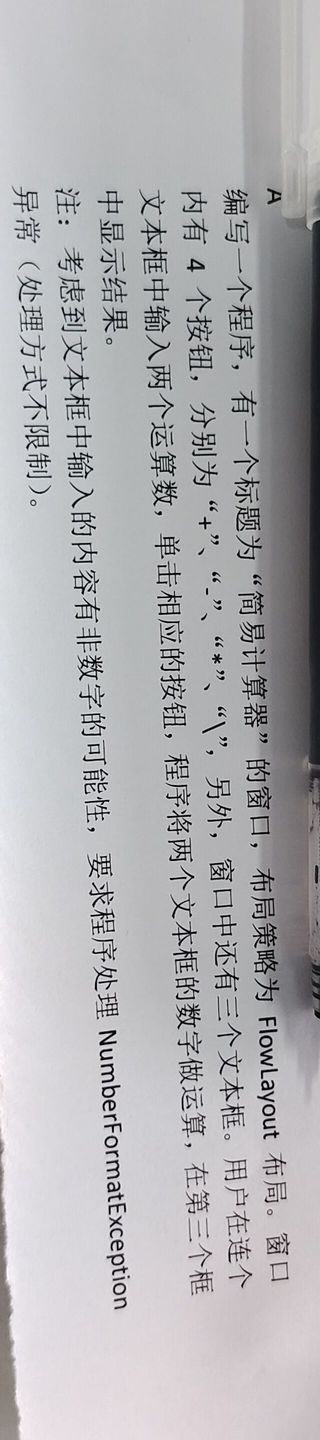 A
编写一个程序，有一个标题为“简易计算器”的窗口，布局策略为 FlowLayout 布局。窗口
内有 4 个按钮，分别为“+”、“-”、“*”、“\”，另外，窗口中还有三个文本框。用户在连个
文本框中输入两个运算数，单击相应的按钮，程序将两个文本框的数字做运算，在第三个框
中显示结果。
注：考虑到文本框中输入的内容有非数字的可能性，要求程序处理 NumberFormatException
异常（处理方式不限制）。